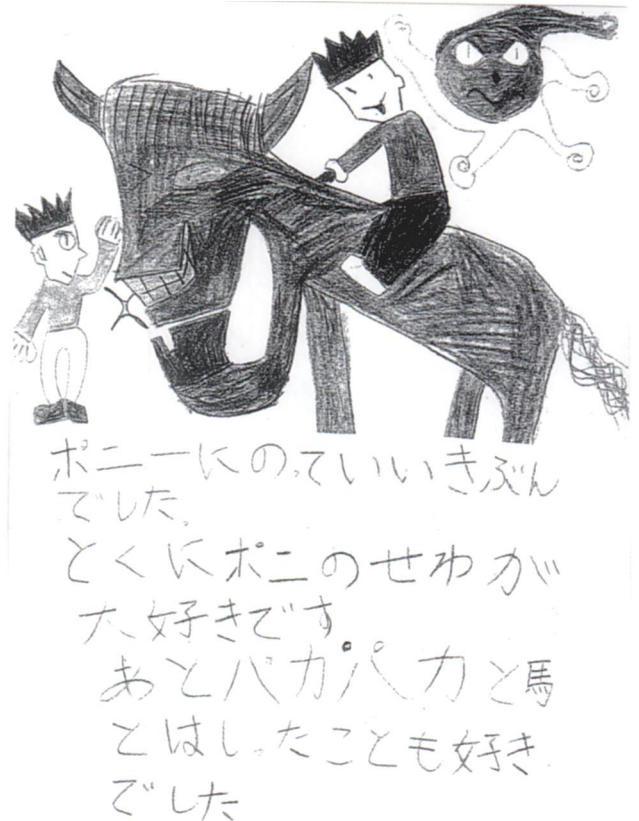 ポニーにのっていいきぶん
でした。
とくにポニのせわが
大好きです
あとパカパカと馬
とはしったことも好き
でした